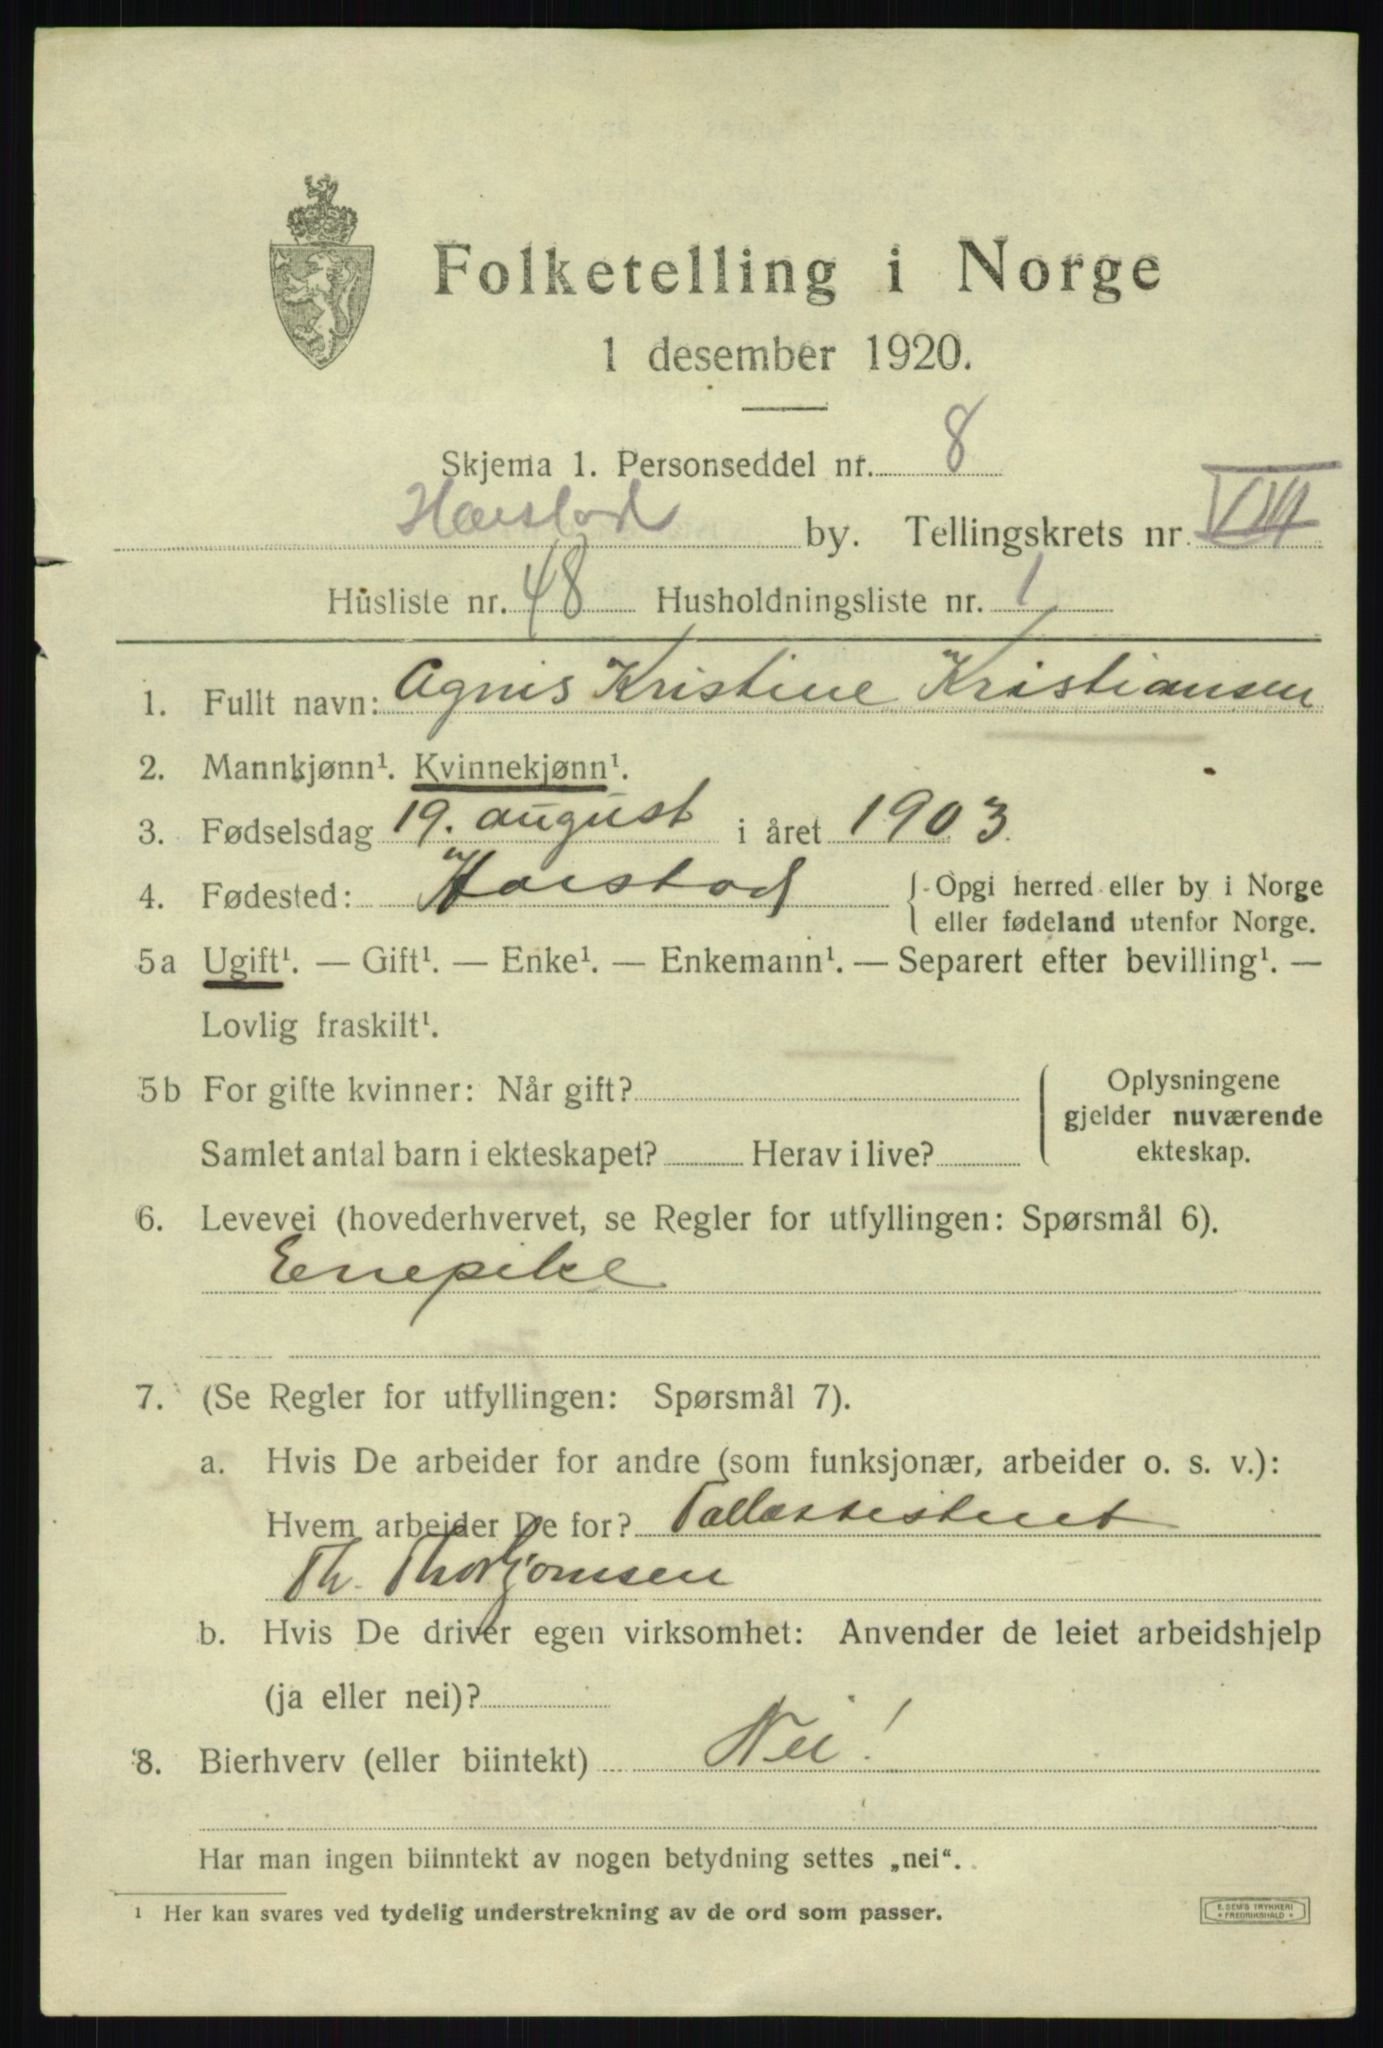 Folketelling i Norge
1 desember 1920.
Skjema 1. Personseddel nr. 8
Harstad by. Tellingskrets nr. VIII
Husliste nr. 48 Husholdningsliste nr. 1
1. Fullt navn: Agnis Kristine Kristiansen
2. Mannkjønn¹. Kvinnekjønn¹.
3. Fødselsdag 19. august i året 1903.
4. Fødested: Harstad { Opgi herred eller by i Norge
eller fødeland utenfor Norge.
5a Ugift¹. — Gift¹. — Enke¹. — Enkemann¹. — Separert efter bevilling¹. —
Lovlig fraskilt¹.
5b For gifte kvinner: Når gift?
Samlet antal barn i ekteskapet? Herav i live?
Oplysningene
gjelder nuværende
ekteskap.
6. Levevei (hovederhvervet, se Regler for utfyllingen: Spørsmål 6).
Enepike
7. (Se Regler for utfyllingen: Spørsmål 7).
a. Hvis De arbeider for andre (som funksjonær, arbeider o. s. v.):
Hvem arbeider De for?
Th.
b. Hvis De driver egen virksomhet: Anvender de leiet arbeidshjelp
(ja eller nei)?
8. Bierhverv (eller biintekt) Nei!
Har man ingen biinntekt av nogen betydning settes „nei“.
¹ Her kan svares ved tydelig understrekning av de ord som passer.
E. SEM'S TRYKKERI
FREDRIKSHALD